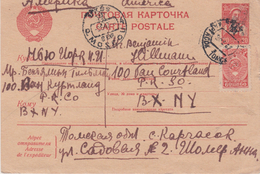 Америка America
ПОЧТОВАЯ КАРТОЧКА
CARTE POSTALE
Куда
Нью Йорк Н.Й.
Мр. Бенжамин Гилман
100 Ван Куртланд
P.R.SO
BX NY
Benjamin
Hillman
100 Van Courtland
P.R. SO.
BX. NY
Кому
Адрес
отправителя
Adresse
de l'expéditeur
Томская обл. с. Каргасок
ул. Садовая № 2. Шолер Анна.